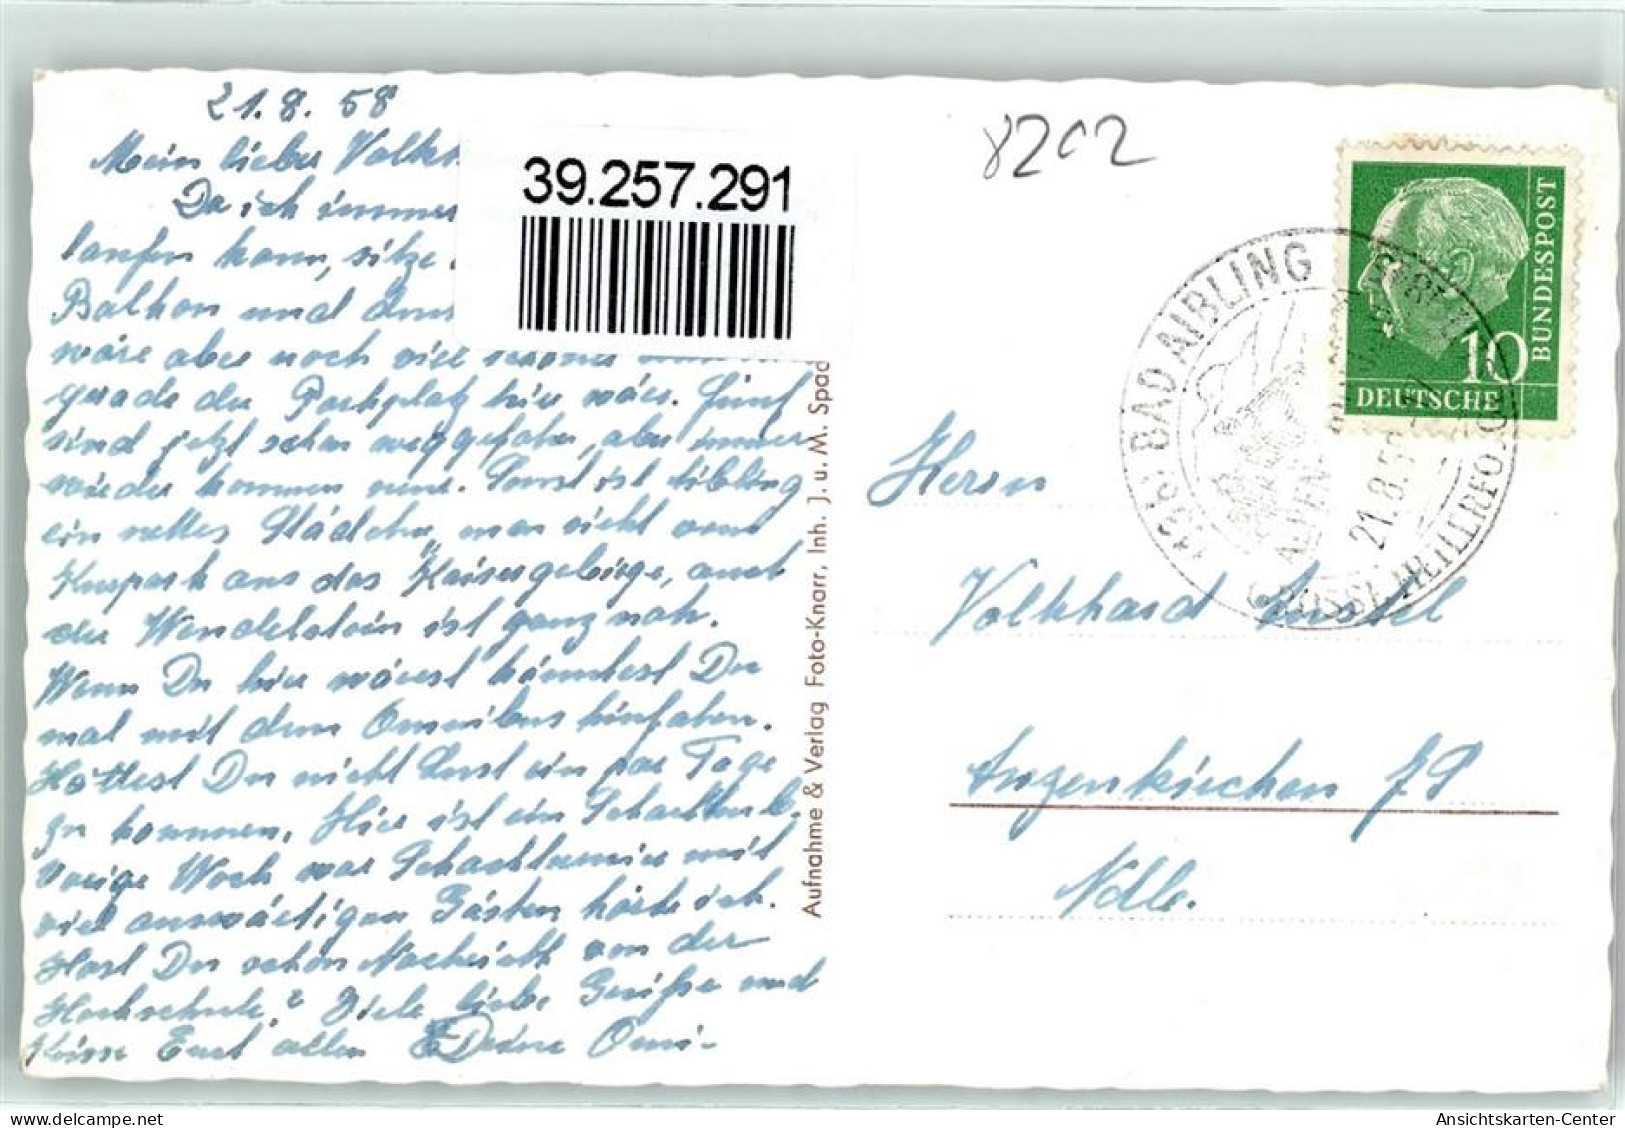 21.8.58
Mein lieber Volker
Da ich immer
laufen kann, sitze
Balkon und
wäre aber noch viel schöner
gerade der Parkplatz hier wäre. Fünf
sind jetzt schon weggefahren, aber immer
wieder kommen neue. Sonst ist Aibling
ein nettes Städtchen, man sieht vom
Kurpark aus das Kaisergebirge, auch
der Wendelstein ist ganz nah.
Wenn Du hier wärest könntest Du
mal mit dem Omnibus hinfahren.
Hättest Du nicht Lust ein par Tage
zu kommen. Hier ist ein Schachklub.
Vorige Woche war Schachturnier mit
viel auswärtigen Gästen hörte ich.
Hast Du schon Nachricht von der
Hochschule? Viele liebe Grüße und
Küsse Euch allen Deine Omi-
39.257.291
Aufnahme & Verlag Foto-Knarr, Inh. J. u. M. Spad
8202
BUNDESPOST
10
DEUTSCHE
BAD AIBLING
ALPEN
21.8.5
GROSSE HEILERFO
Herrn
Volkhard
Anzenkirchen
Ndb.
Ansichtskarten-Center
www.delcampe.net